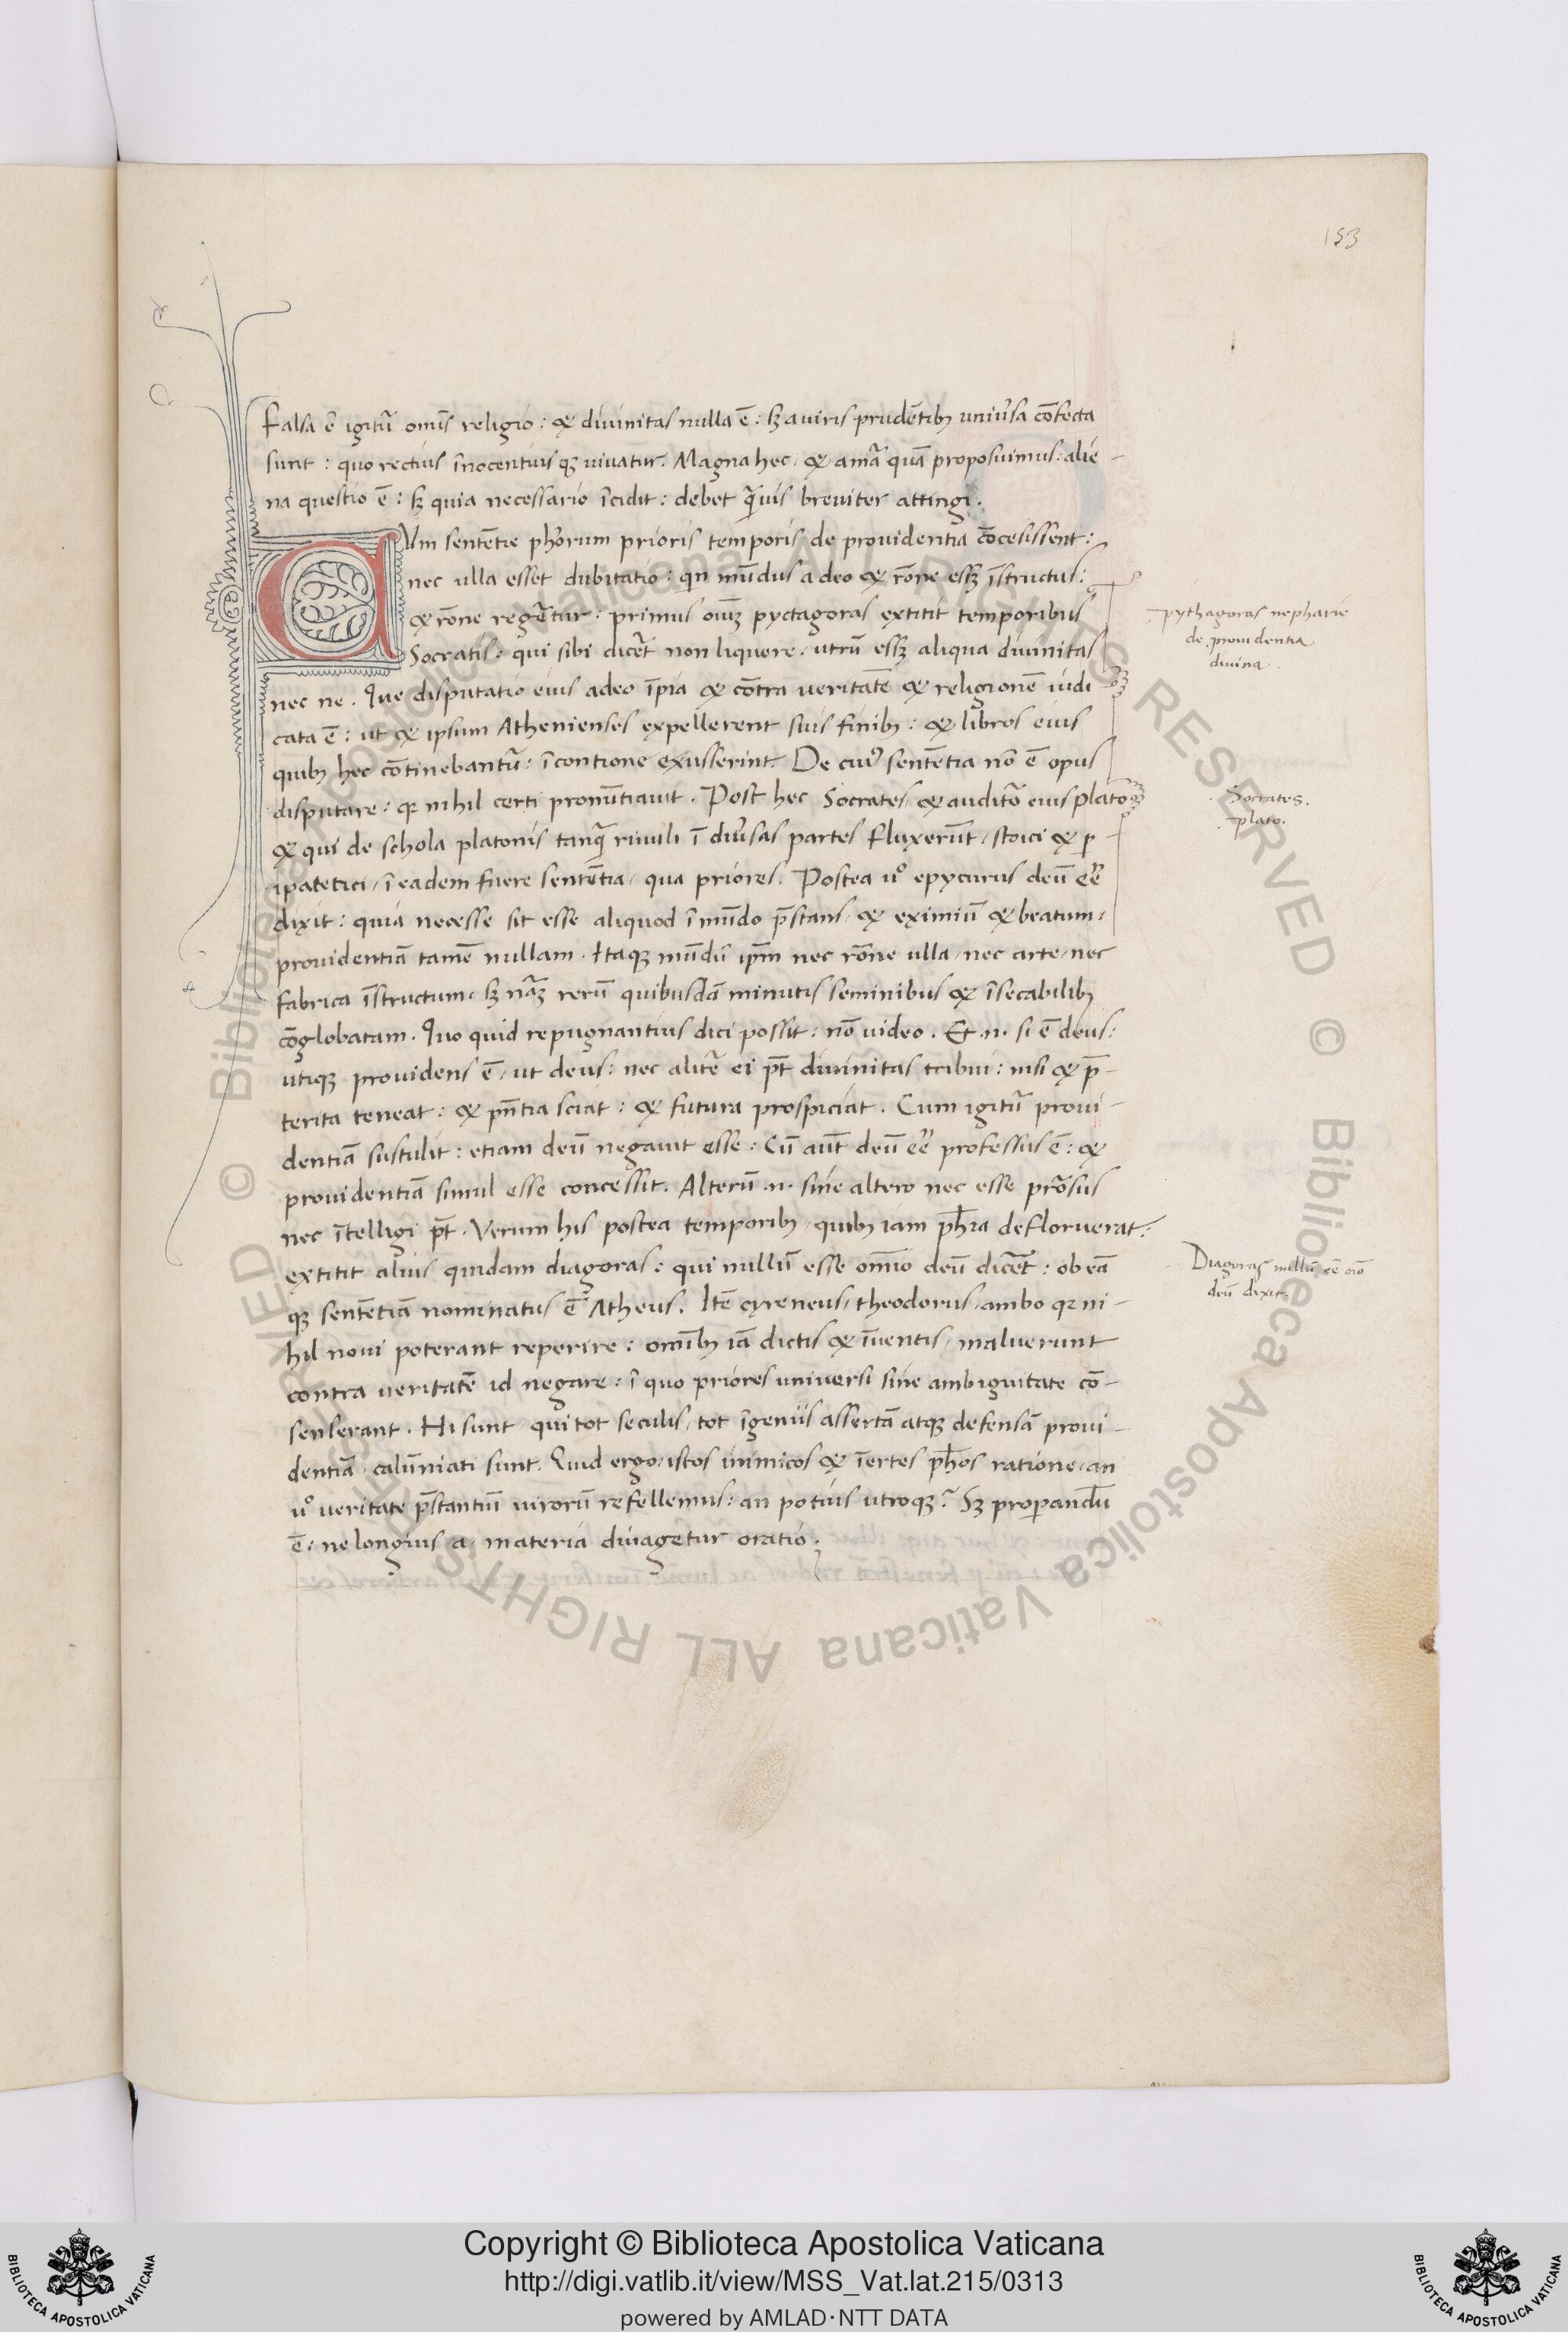 153
Falsa ē igit᷑ om̄is religio : & divinitas nulla ē : sꝫ a viris prudētibꝫ univ̉sa cōfecta
sunt : quo rectius īnocentius qꝫ vivatur. Magna hec, & amā quā proposuimus : alie-
na questio ē : sꝫ quia necessario īcidit : debet q̄vis breviter attingi.
CUm sentētie ph̄orum prioris temporis de providentia cōcesissent :
nec ulla esset dubitatio : qn mūdus a deo & rōne essꝫ īstructus :
& rōne reget᷑ur : primus oiūꝫ pyctagoras extitit temporibus
Socratis : qui sibi dicēt non liquere, utrū essꝫ aliqua divinitas
nec ne. Que disputatio eius adeo īpia & cōtra veritatē & religionē iudi
cata ē : ut & ipsum Athenienses expellerent suis finibꝫ : & libros eius
quibꝫ hec cōtinebant᷑ : ī contione exusserint. De cuiꝰ sentētia nō ē opus
disputare : qꝛ nihil certi pronūtiavit. Post hec Socrates, & auditō eius plato
& qui de schola platonis tanq̄ rivuli ī div̉sas partes fluxerūt, stoici & p̲
ipatetici, ī eadem fuere sentētia, qua priores. Postea v° epycurus deū eē
dixit : quia necesse sit esse aliquod ī mūdo p̄stans, & eximiū & beatum,
providentiā tamē nullam. Itaqꝫ mūdū ip̄m nec rōne ulla, nec arte, nec
fabrica īstructum, sꝫ nāꝫ rerū quibusdā minutis seminibus & īsecabilibꝫ
cōglobatam. Quo quid repugnantius dici possit : nō video. Et .n. si ē deus :
utiqꝫ providens ē, ut deus : nec alit᷑ ei p̄t divinitas tribui : nisi & p̄-
terita teneat : & pn̄tia sciat : & futura prospiciat. Cum igit᷑ provi-
dentiā sustulit : etiam deū negavit esse : Cū aūt deū eē professus ē : &
providentiā simul esse concessit. Alterū .n. sine altero nec esse prōsus
nec ītelligi p̄t. Verum his postea temporibꝫ, quibꝫ iam ph̄ia defloruerat :
extitit alius quidam diagoras : qui nullū esse om̄io deū dicēt : ob eā
qꝫ sentētiā nominatus ē Atheus. Itē cyreneus, theodorus, ambo qꝛ ni-
hil novi poterant reperire : om̄ibꝫ iā dictis & īventis, maluerunt
contra veritatē id negare : ī quo priores universi sine ambiguitate cō-
senserant. Hi sunt qui tot seculis, tot īgeniis assertā atqꝫ defensā provi-
dentiā, calūniati sunt. Quid ergo, istos inimicos & īertes ph̄os ratione, an
v° veritate p̄stantiū virorū refellemus : an potius utroqꝫ? Sꝫ properandū
ē : ne longius a materia divagetur oratio.
pythagoras nepharie
de providentia
divina.
Socrates.
plato.
Diagoras nullū eē oīo
deū dixit.
Copyright © Biblioteca Apostolica Vaticana
http://digi.vatlib.it/view/MSS_Vat.lat.215/0313
powered by AMLAD·NTT DATA
BIBLIOTECA APOSTOLICA VATICANA
BIBLIOTECA APOSTOLICA VATICANA
© Biblioteca Apostolica Vaticana ALL RIGHTS RESERVED © Biblioteca Apostolica Vaticana ALL RIGHTS RESERVED